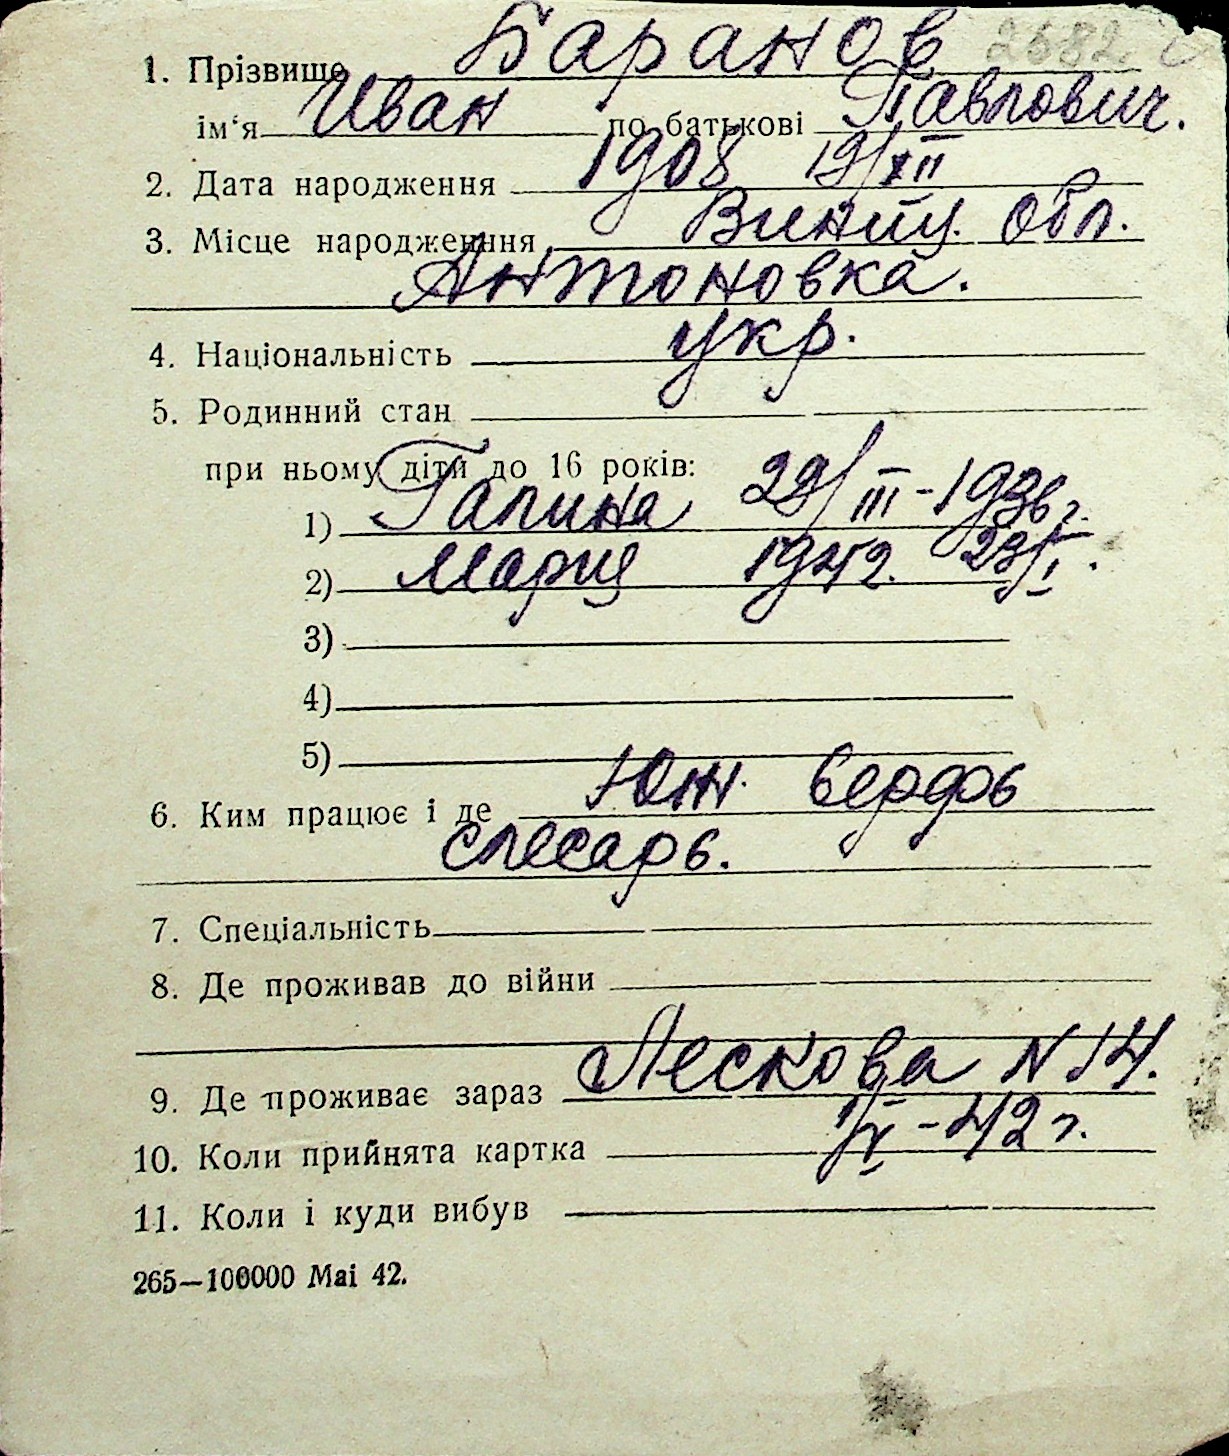 2682
1. Прізвище Баранов
ім'я Иван по батькові Павлович.
2. Дата народження 1908 19/XII
3. Місце народження Винниц. обл.
Антоновка.
4. Національність укр.
5. Родинний стан
при ньому діти до 16 років:
1) Галина 29/III - 1936 г.
2) Мария 1942. 23/I.
3)
4)
5)
6. Ким працює і де Юж. верфь
слесарь.
7. Спеціальність
8. Де проживав до війни
9. Де проживає зараз Лескова N 14.
10. Коли прийнята картка - 42 г.
11. Коли і куди вибув
265—100000 Mai 42.